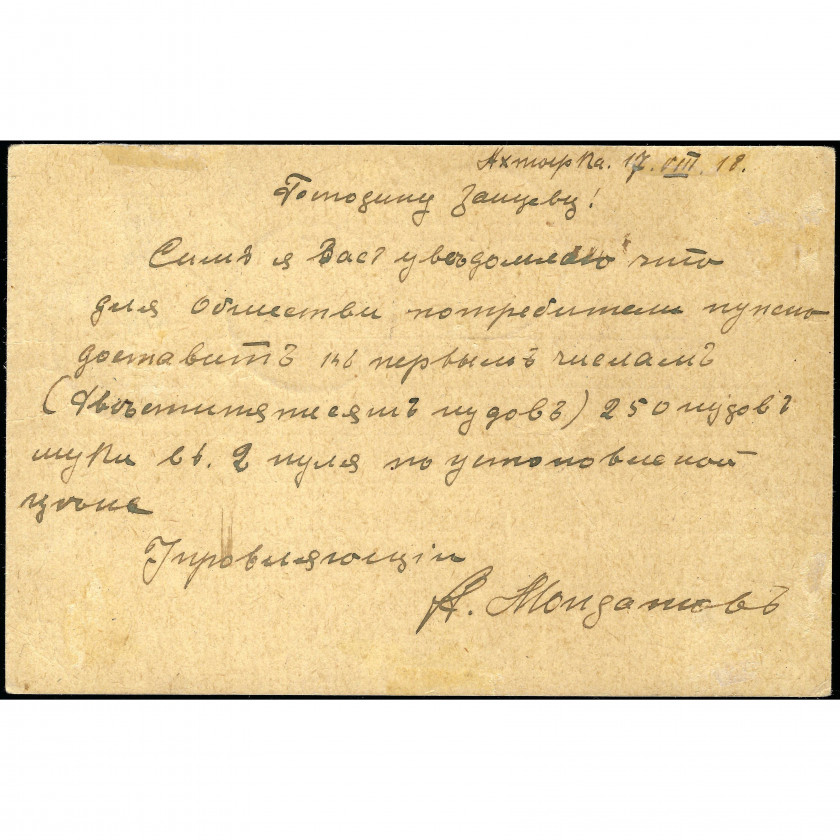 Ахтырка. 17.VIII.18.
Господину Зайцеву!
Симъ я Васъ уведомляю что
для Обшестви потребители нужно
доставитъ къ первымъ числамъ
(Двѣстипятисятъ пудовъ) 250 пудовъ
муки въ. 2 нуля по установленой
цѣне
Управляющiи
А.